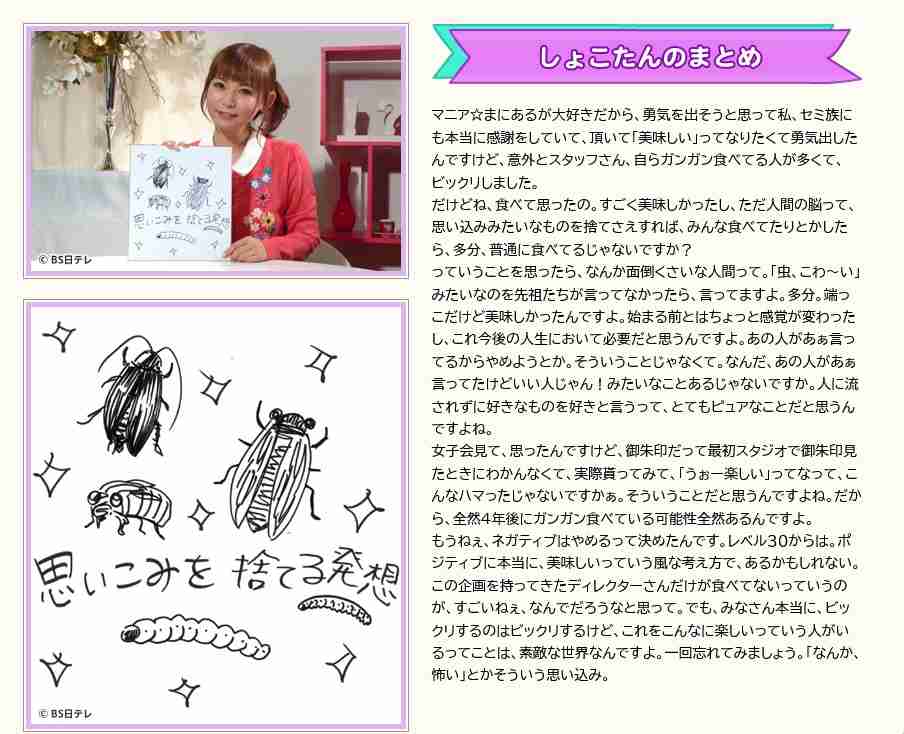 思いこみを捨てる発想
© BS日テレ
思いこみを捨てる発想
© BS日テレ
しょこたんのまとめ
マニア☆まにあるが大好きだから、勇気を出そうと思って私、セミ族に
も本当に感謝をしていて、頂いて「美味しい」ってなりたくて勇気出した
んですけど、意外とスタッフさん、自らガンガン食べてる人が多くて、
ビックリしました。
だけどね、食べて思ったの。すごく美味しかったし、ただ人間の脳って、
思い込みみたいなものを捨てさえすれば、みんな食べてたりとかした
ら、多分、普通に食べてるじゃないですか？
っていうことを思ったら、なんか面倒くさいな人間って。「虫、こわ～い」
みたいなのを先祖たちが言ってなかったら、言ってますよ。多分。端っ
こだけど美味しかったんですよ。始まる前とはちょっと感覚が変わった
し、これ今後の人生において必要だと思うんですよ。あの人があぁ言っ
てるからやめようとか。そういうことじゃなくて。なんだ、あの人があぁ
言ってたけどいい人じゃん！みたいなことあるじゃないですか。人に流
されずに好きなものを好きと言うって、とてもピュアなことだと思うん
ですよね。
女子会見て、思ったんですけど、御朱印だって最初スタジオで御朱印見
たときにわかんなくて、実際貰ってみて、「うぉー楽しい」ってなって、こ
んなハマったじゃないですかぁ。そういうことだと思うんですよね。だか
ら、全然4年後にガンガン食べている可能性全然あるんですよ。
もうねぇ、ネガティブはやめるって決めたんです。レベル30からは。ポ
ジティブに本当に、美味しいっていう風な考え方で、あるかもしれない。
この企画を持ってきたディレクターさんだけが食べてないっていうの
が、すごいねぇ、なんでだろうなと思って。でも、みなさん本当に、ビッ
クリするのはビックリするけど、これをこんなに楽しいっていう人がい
るってことは、素敵な世界なんですよ。一回忘れてみましょう。「なんか、
怖い」とかそういう思い込み。